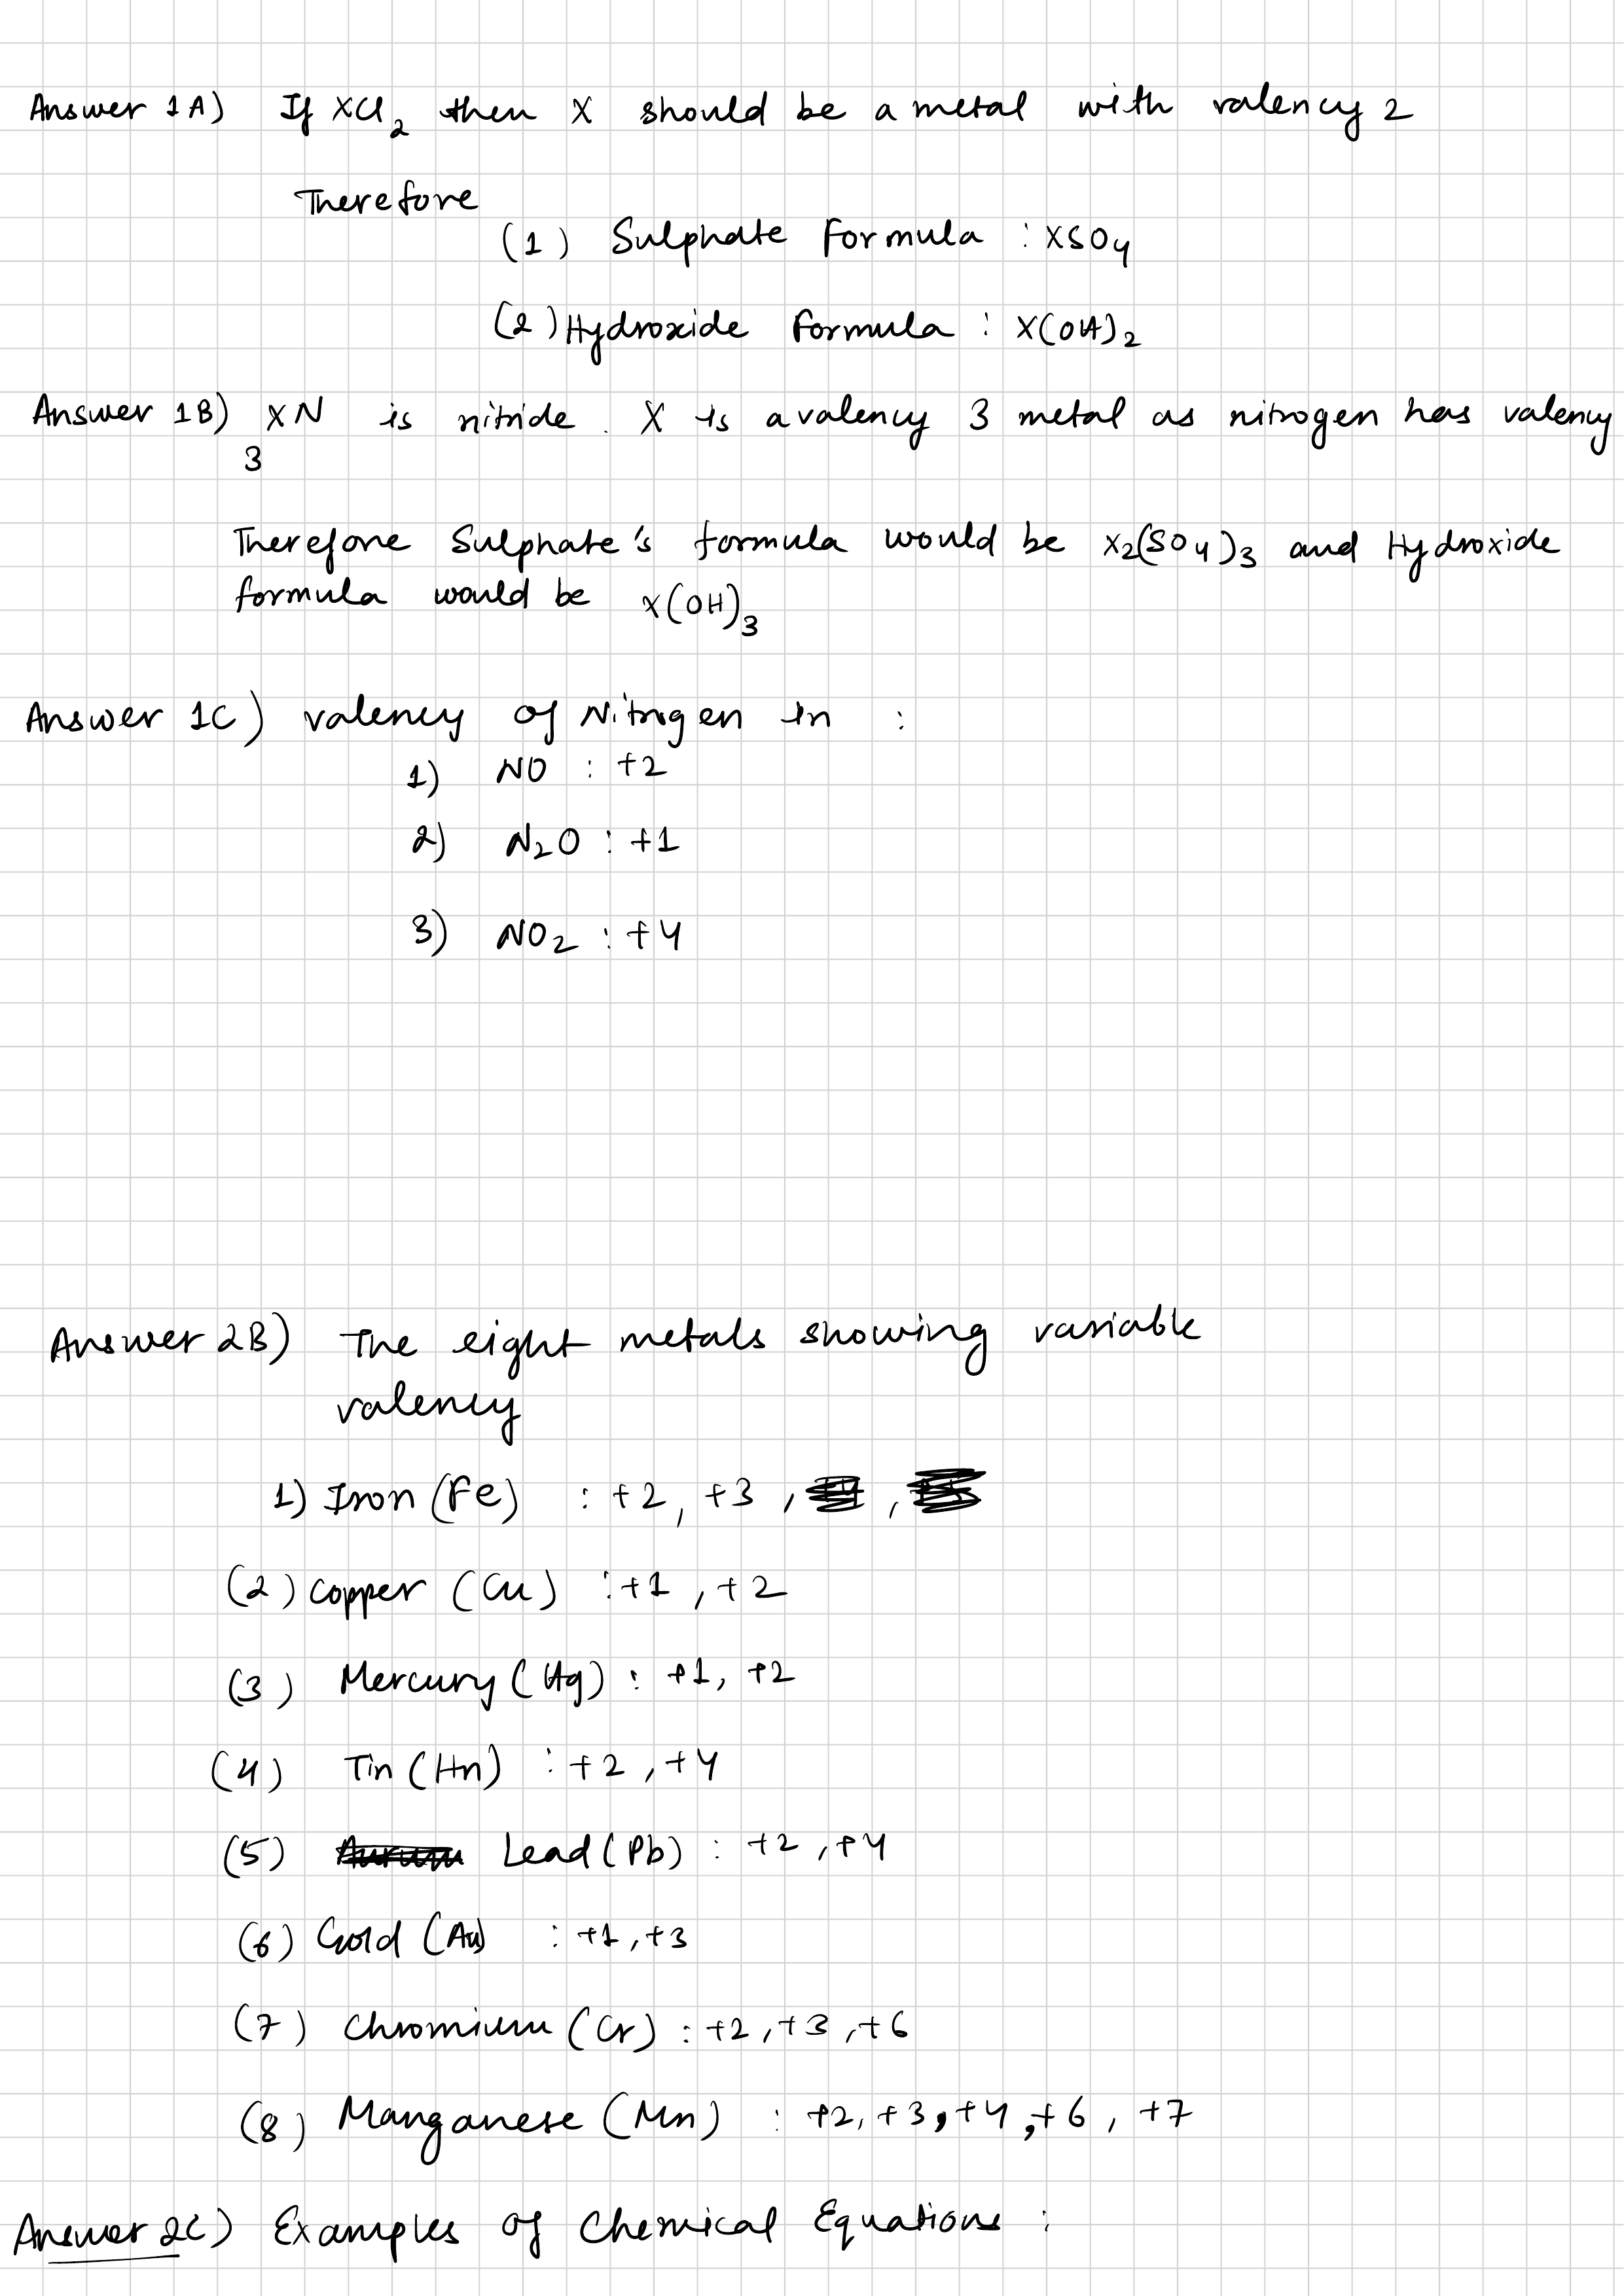 Answer 1A) If XCl₂ then X should be a metal with valency 2
Therefore
(1) Sulphate Formula : XSO₄
(2) Hydroxide Formula : X(OH)₂
Answer 1B) XN is nitride. X is a valency 3 metal as nitrogen has valency
3
Therefore Sulphate's formula would be X₂(SO₄)₃ and Hydroxide
formula would be X(OH)₃
Answer 1C) valency of Nitrogen in :
1) NO : +2
2) N₂O : +1
3) NO₂ : +4
Answer 2B) The eight metals showing variable
valency
1) Iron (Fe) : +2, +3 , ,
(2) Copper (Cu) : +1, +2
(3) Mercury (Hg) : +1, +2
(4) Tin (Hn) : +2, +4
(5) Lead (Pb) : +2, +4
(6) Gold (Au) : +1, +3
(7) Chromium (Cr) : +2, +3, +6
(8) Manganese (Mn) : +2, +3, +4, +6, +7
Answer 2C) Examples of Chemical Equations :